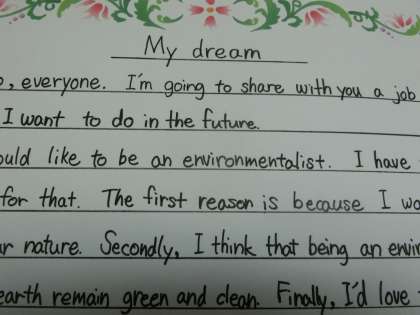 My dream
everyone. I'm going to share with you a job
I want to do in the future.
like to be an environmentalist. I have
for that. The first reason is because I
nature. Secondly, I think that being an
earth remain green and clean. Finally, I'd love